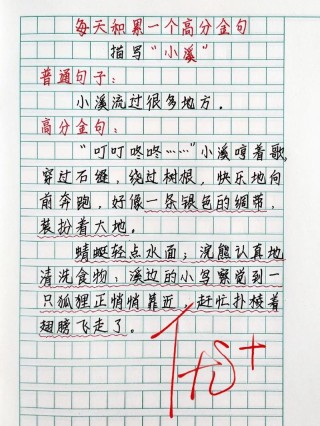 每天积累一个高分金句
描写“小溪”
普通句子：
小溪流过很多地方。
高分金句：
“叮叮咚咚……”小溪哼着歌，
穿过石缝，绕过树根，快乐地向
前奔跑，好像一条银色的绸带，
装扮着大地。
蜻蜓轻点水面；浣熊认真地
清洗食物；溪边的小鸟察觉到一
只狐狸正悄悄靠近，赶忙扑棱着
翅膀飞走了。